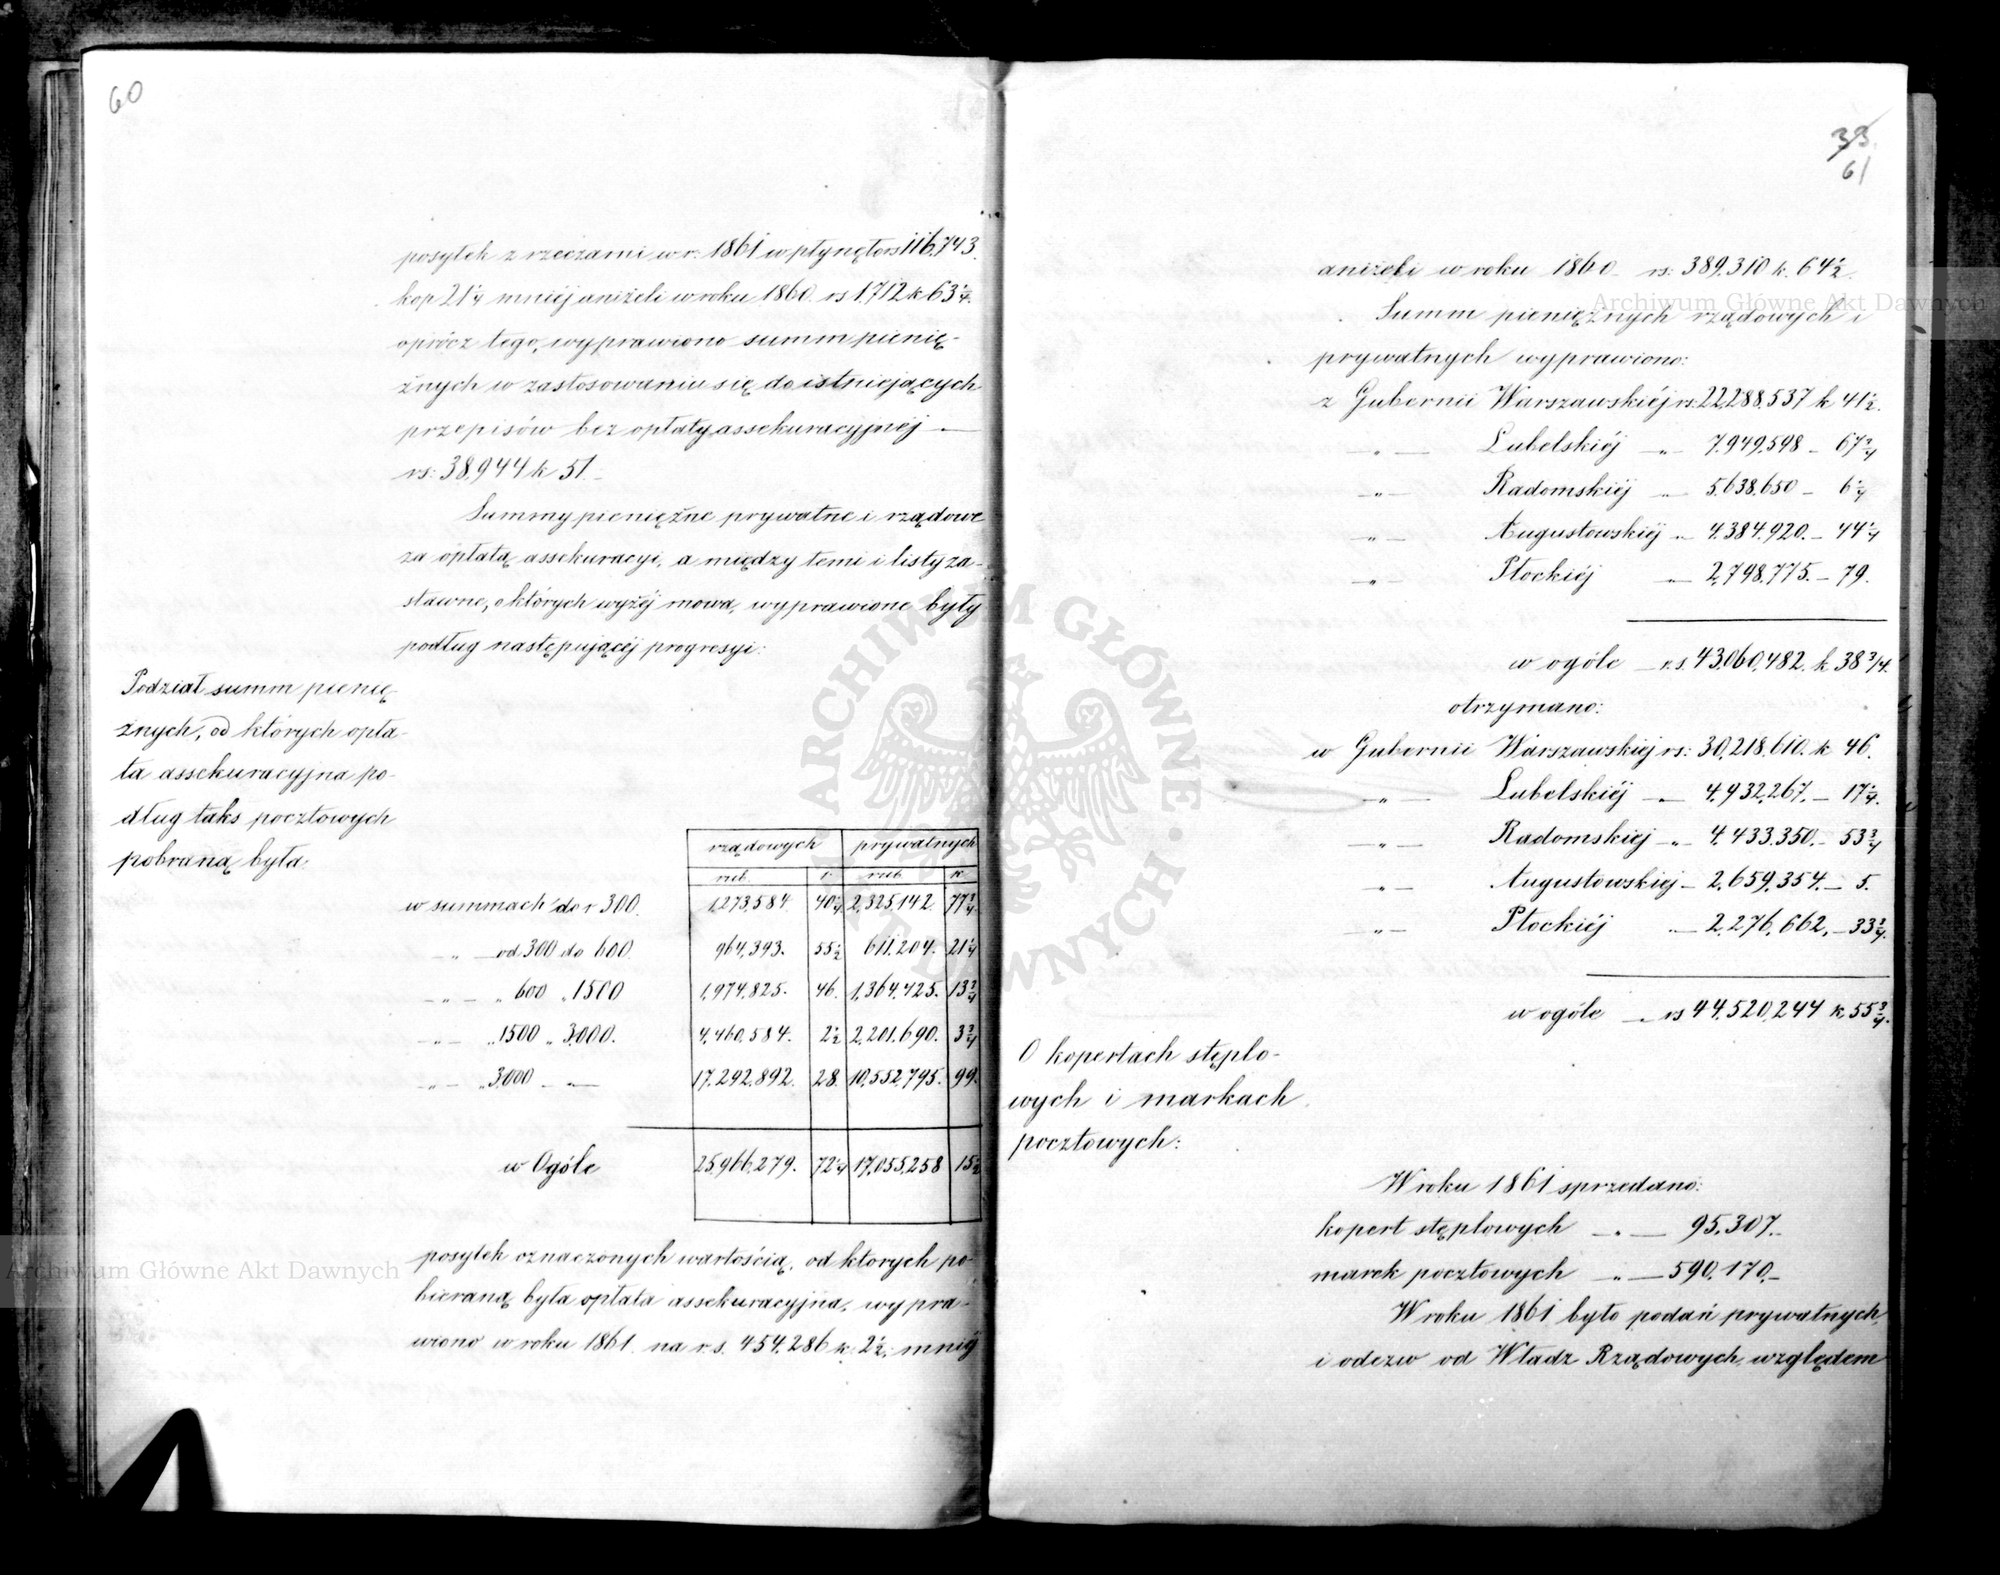 60
posyłek z rzeczami w r: 1861 wpłynęło rs 116,743.
kop 21 1/4 mniéj aniżeli w roku 1860. rs 1712 k 63 1/4.
oprócz tego, wyprawiono summ pienię-
żnych w zastosowaniu się do istniejących
przepisów bez opłaty assekuracyjnéj —
rs: 38,944 k 51.—
Summy pieniężne prywatne i rządowe
za opłatą assekuracyi, a między temi i listy za-
stawne, o których wyżéj mowa, wyprawione były
podług następującéj progresyi:
Podział summ pienię-
żnych, od których opła-
ta assekuracyjna po-
dług taks pocztowych
pobraną była:
rządowych prywatnych
rub. k rub. k
w summach do r 300. 1,273,584. 40 1/4 2,325,142. 77 3/4
— „ — od 300 do 600. 964,393. 55 1/2 611,204. 21 1/4
— „ — „ 600 „ 1500 1,974,825. 46. 1,364,425. 13 3/4
— „ — „ 1500 „ 3,000. 4,460,584. 2 1/2 2,201,690. 3 3/4
— „ — „ 3,000 — „ — 17,292,892. 28. 10,552,795. 99.
w Ogóle 25,966,279. 72 1/4 17,055,258 15 1/2
posyłek oznaczonych wartością, od ktorych po-
bieraną była opłata assekuracyjna, wypra-
wiono w roku 1861. na rs. 454,286 k. 2 1/2. mniéj
33.
61
aniżeli w roku 1860. rs: 389,310 k. 64 1/2.
Summ pieniężnych rządowych i
prywatnych wyprawiono:
z Gubernii Warszawskiéj rs: 22,288,537 k 41 1/2.
— „ — Lubelskiéj — „ — 7,949,598 — 67 3/4
— „ — Radomskiéj „ — 5,638,650 — 6 1/4
— „ — Augustowskiéj „ — 4,384,920. — 44 1/4
— „ — Płockiéj — „ — 2,798,775. — 79.
w ogóle — rs. 43,060,482. k 38 3/4.
otrzymano:
w Gubernii Warszawskiej rs: 30,218,610. k 46.
— „ — Lubelskiéj — „ — 4,932,267. — 17 1/4.
— „ — Radomskiej — „ — 4,433,350. — 53 3/4
— „ — Augustowskiej — 2,659,354. — 5.
— „ — Płockiéj „ — 2,276,662. — 33 3/4.
w ogóle — „ rs 44,520,244 k 55 3/4.
O kopertach stęplo-
wych i markach
pocztowych:
W roku 1861 sprzedano:
kopert stęplowych — „ — 95,307.—
marek pocztowych — „ — 590,170.—
W roku 1861 było podań prywatnych,
i odezw od Władz Rządowych, względem
Archiwum Główne Akt Dawnych
Archiwum Główne Akt Dawnych
ARCHIWUM GŁÓWNE AKT DAWNYCH